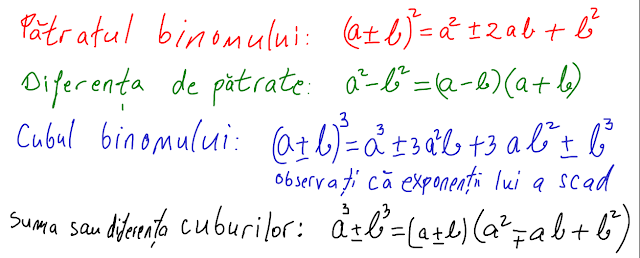 Pătratul binomului: (a±b)²=a²±2ab+b²
Diferența de pătrate: a²-b²=(a-b)(a+b)
Cubul binomului: (a±b)³=a³±3a²b+3ab²±b³
observați că exponenții lui a scad
suma sau diferența cuburilor: a³±b³=(a±b)(a²∓ab+b²)